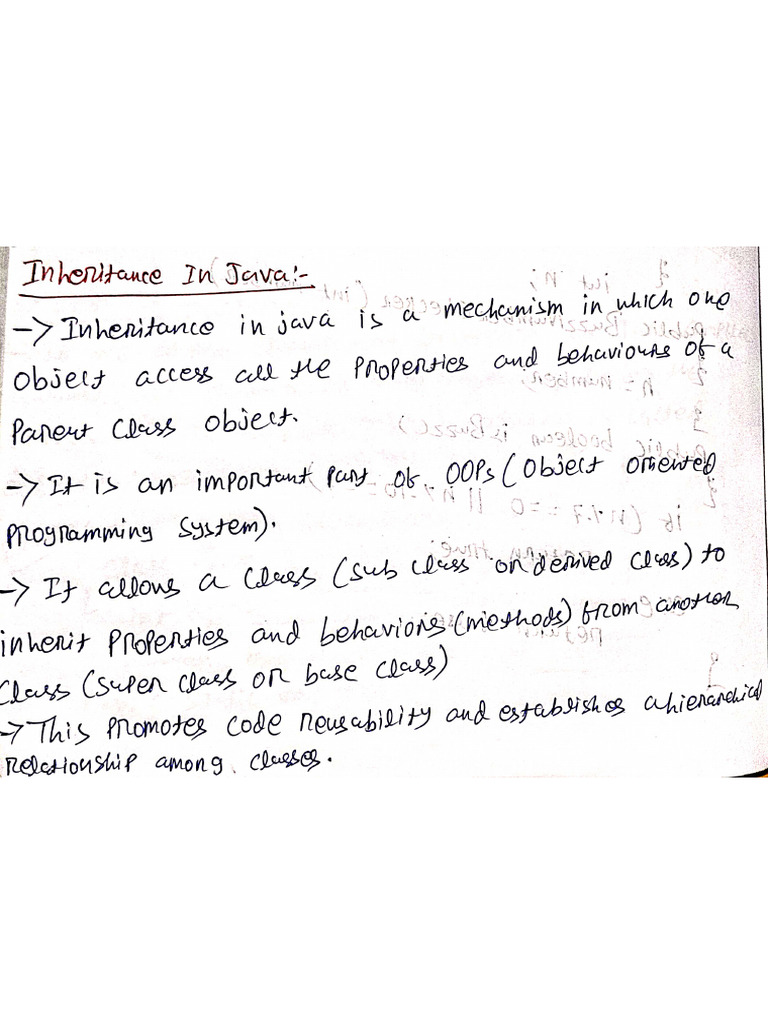 Inheritance In Java:-
-> Inheritance in java is a mechanism in which one
object access all the properties and behaviours of a
Parent class object.
-> It is an important part of OOPs (Object oriented
programming system).
-> It allows a class (sub class or derived class) to
inherit properties and behaviors (methods) from another
class (super class or base class)
-> This promotes code reusability and establishes a hierarchical
relationship among classes.